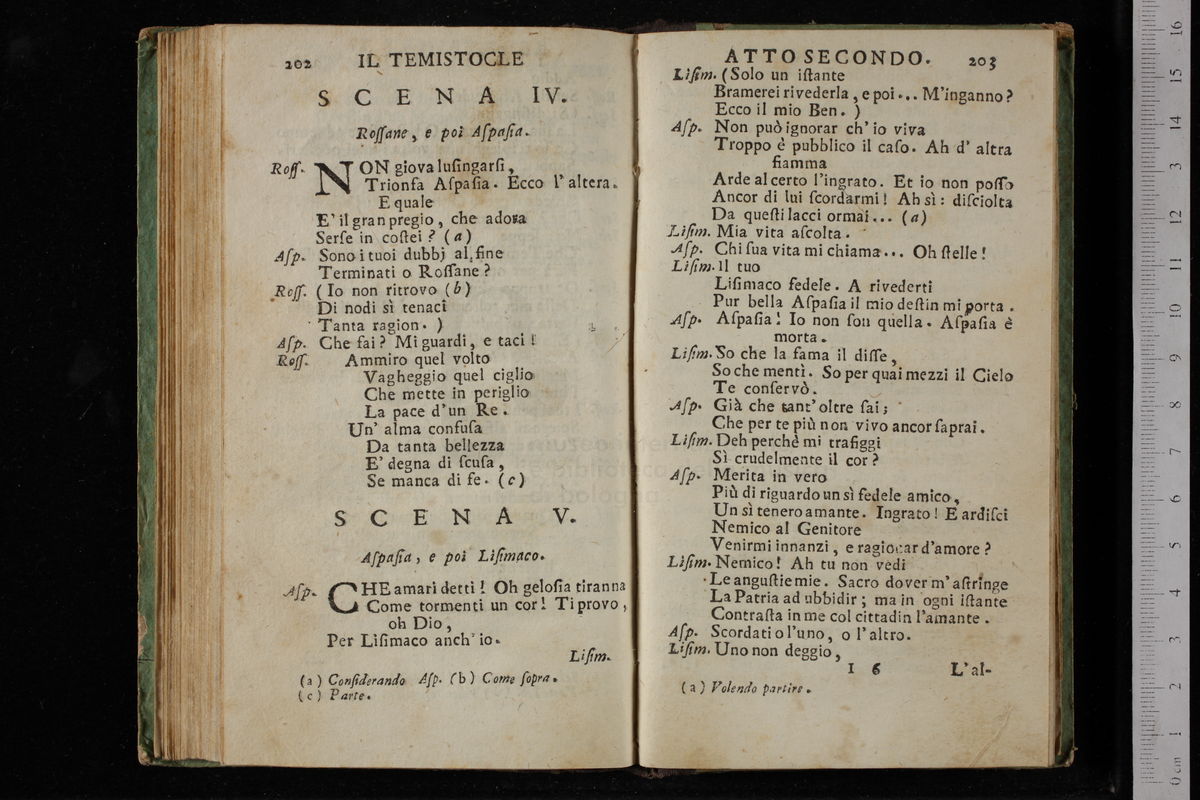 202 IL TEMISTOCLE
SCENA IV.
Roſſane, e poi Aſpaſia.
Roſſ. NON giova luſingarſi,
Trionfa Aſpaſia. Ecco l'altera.
E quale
E' il gran pregio, che adora
Serſe in coſtei? (a)
Aſp. Sono i tuoi dubbj al fine
Terminati o Roſſane?
Roſſ. (Io non ritrovo (b)
Di nodi sì tenaci
Tanta ragion. )
Aſp. Che fai? Mi guardi, e taci!
Roſſ. Ammiro quel volto
Vagheggio quel ciglio
Che mette in periglio
La pace d'un Re.
Un' alma confuſa
Da tanta bellezza
E' degna di ſcuſa,
Se manca di fe. (c)
SCENA V.
Aſpaſia, e poi Liſimaco.
Aſp. CHE amari detti! Oh geloſia tiranna
Come tormenti un cor! Ti provo,
oh Dio,
Per Liſimaco anch' io.
Liſim.
(a) Conſiderando Aſp. (b) Come ſopra.
(c) Parte.
ATTO SECONDO. 203
Liſim. (Solo un iſtante
Bramerei rivederla, e poi... M'inganno?
Ecco il mio Ben. )
Aſp. Non può ignorar ch' io viva
Troppo è pubblico il caſo. Ah d' altra
fiamma
Arde al certo l'ingrato. Et io non poſſo
Ancor di lui ſcordarmi! Ah sì: diſciolta
Da queſti lacci ormai... (a)
Liſim. Mia vita aſcolta.
Aſp. Chi ſua vita mi chiama... Oh ſtelle!
Liſim. Il tuo
Liſimaco fedele. A rivederti
Pur bella Aſpaſia il mio deſtin mi porta.
Aſp. Aſpaſia! Io non ſon quella. Aſpaſia è
morta.
Liſim. So che la fama il diſſe,
So che mentì. So per quai mezzi il Cielo
Te conſervò.
Aſp. Già che tant' oltre ſai;
Che per te più non vivo ancor ſaprai.
Liſim. Deh perchè mi trafiggi
Sì crudelmente il cor?
Aſp. Merita in vero
Più di riguardo un sì fedele amico,
Un sì tenero amante. Ingrato! E ardiſci
Nemico al Genitore
Venirmi innanzi, e ragionar d'amore?
Liſim. Nemico! Ah tu non vedi
Le anguſtie mie. Sacro dover m' aſtringe
La Patria ad ubbidir; ma in ogni iſtante
Contraſta in me col cittadin l'amante.
Aſp. Scordati o l'uno, o l'altro.
Liſim. Uno non deggio,
I 6 L'al-
(a) Volendo partire.
16
15
14
13
12
11
10
9
8
7
6
5
4
3
2
1
0 cm